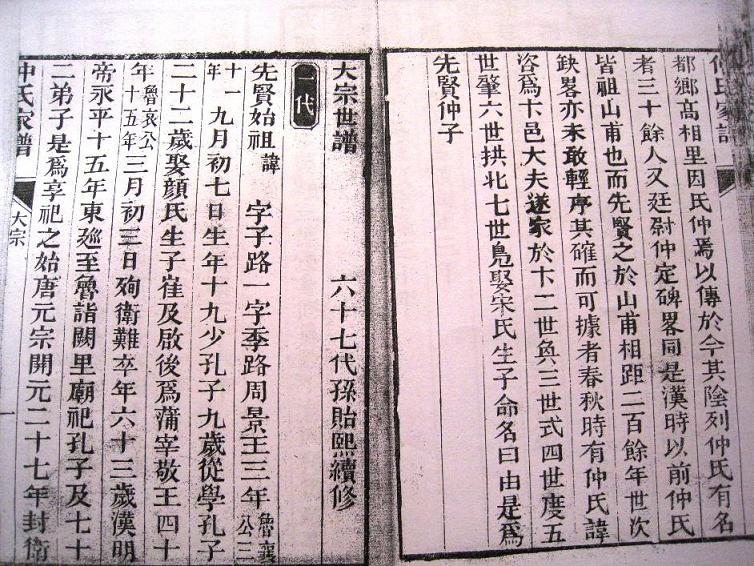 仲氏家譜
都鄉高相里因氏仲焉以傳於今其陰列仲氏有名
者三十餘人又廷尉仲定碑畧同是漢時以前仲氏
皆祖山甫也而先賢之於山甫相距二百餘年世次
缺畧亦未敢輕序其確而可據者春秋時有仲氏諱
咨爲卞邑大夫遂家於卞二世奐三世式四世度五
世肇六世拱北七世鳧娶宋氏生子命名曰由是爲
先賢仲子
大宗世譜 六十七代孫貽熙續修
一代
先賢始祖諱 字子路一字季路周景王三年魯襄公三
十一年九月初七日生年十九少孔子九歲從學孔子
二十二歲娶顏氏生子崔及啟後爲蒲宰敬王四十
年魯哀公十五年三月初三日殉衛難卒年六十三歲漢明
帝永平十五年東廵至魯詣闕里廟祀孔子及七十
二弟子是爲享祀之始唐元宗開元二十七年封衛
仲氏家譜 大宗 一